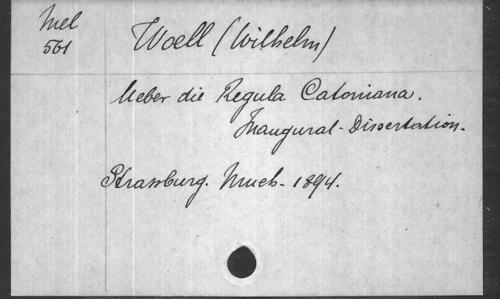 Mel
561
Woell (Wilhelm)
Ueber die Regula Catoniana.
Inaugural-Dissertation.
Strassburg. Much. 1894.